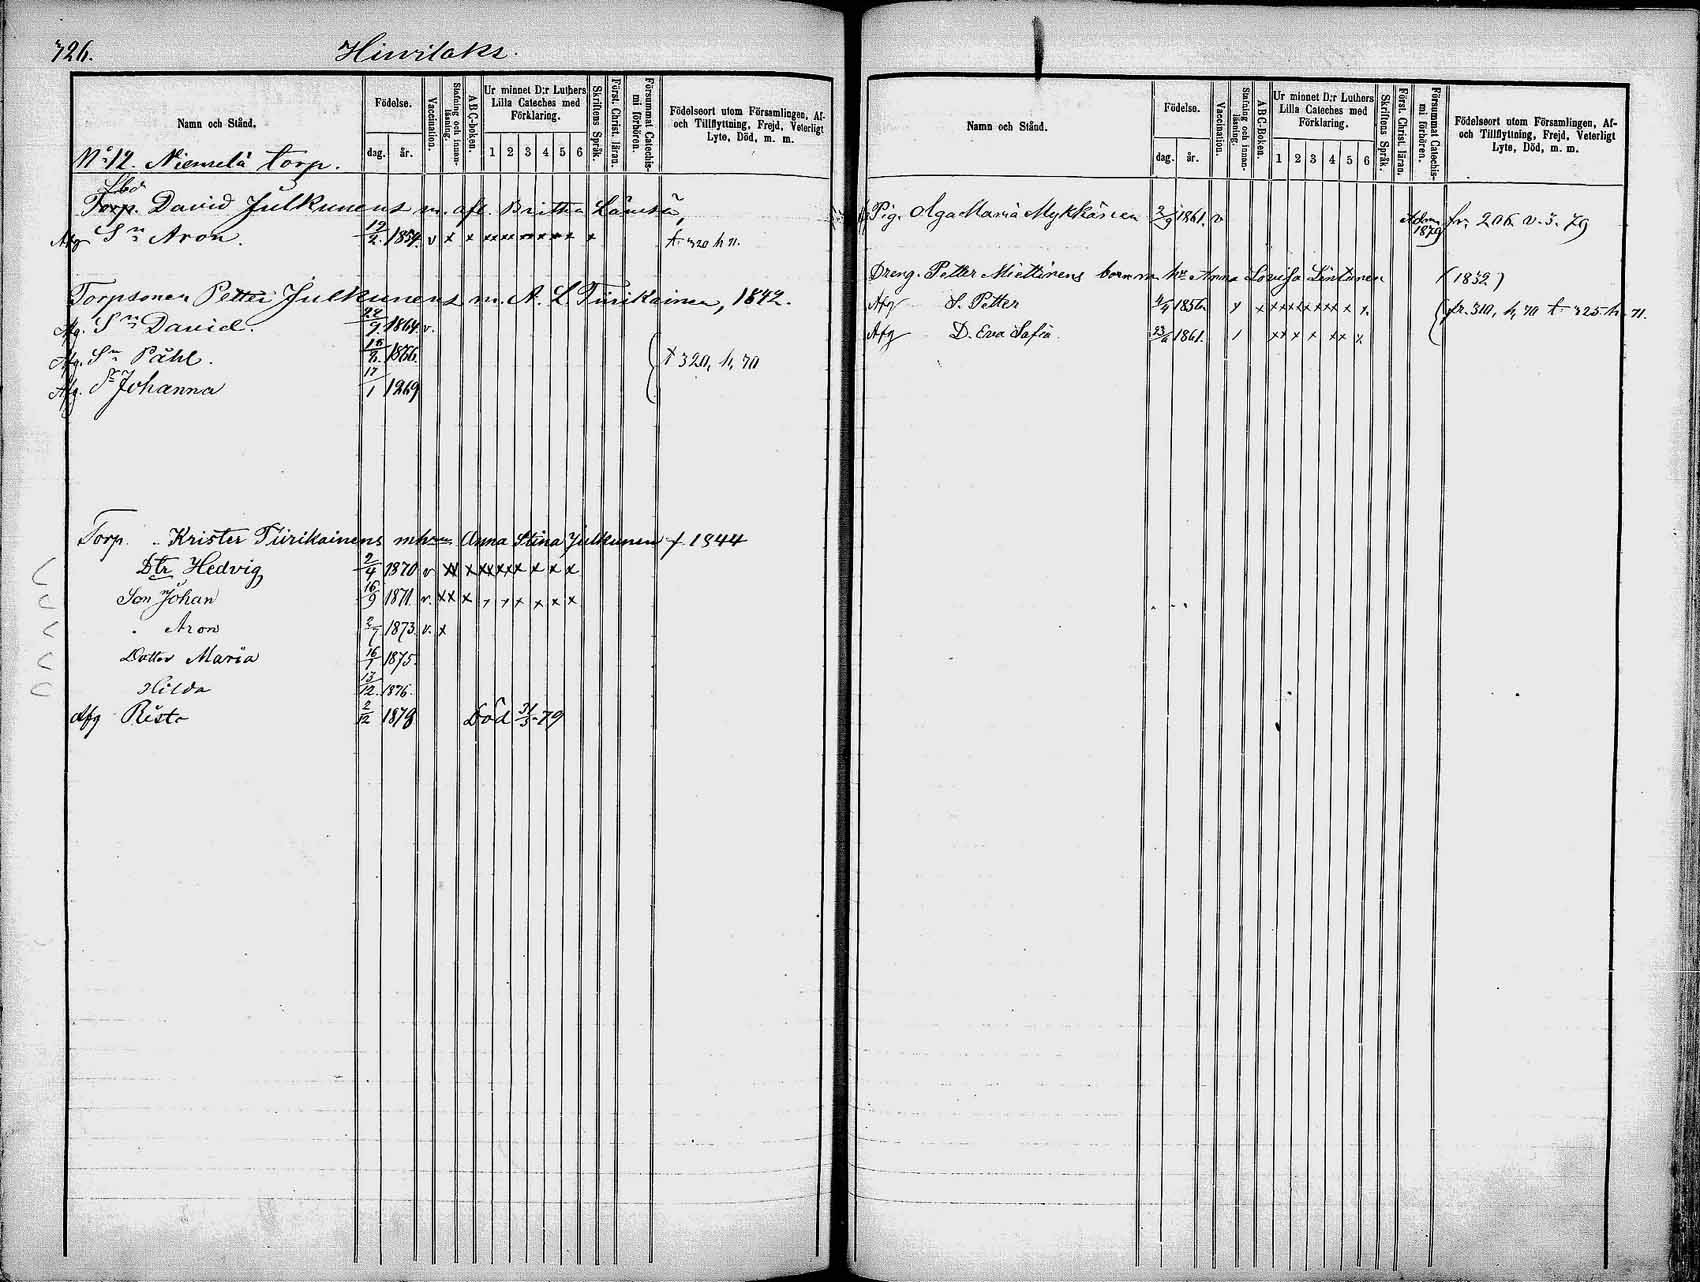 726. Hinrilaks.
Namn och Stånd.
Födelse.
dag. år.
Vaccination.
Stafning och innanläsning.
ABC-boken.
Ur minnet D:r Luthers Lilla Cateches med Förklaring.
1 2 3 4 5 6
Skriftens Språk.
Först. Christ. läran.
Försummat Catechismi förhören.
Födelseort utom Församlingen, Af- och Tillflyttning, Frejd, Veterligt Lyte, Död, m. m.
No 12. Niemelä torp.
Torp. David Julkunens m. afl. Britta Lämsä,
Afg Sn Aron. 12/2. 1854. v x x xx xx xx x x x t. 320 h 71.
Torpsonen Petter Julkunens m. A. L Tiirikainen, 1842.
Afg. Sn David. 22/9. 1864. v.
Afg. Sn Påhl. 15/8. 1866. t 320, h, 70
Afg. Johanna 17/1 1869
Torp. Krister Tiirikainens m hrun Anna Stina Julkunen f. 1844
Dtr Hedvig 2/4 1870 v xx x xx xx x x x x
Son Johan 16/9 1871. v. xx x x x x x x x
Aron 2/7 1873. v. x
Dotter Maria 16/1 1875.
Hilda 13/12. 1876.
Afg Risto 2/12 1878 Död 31/3-79
Namn och Stånd.
Födelse.
dag. år.
Vaccination.
Stafning och innanläsning.
ABC-Boken.
Ur minnet D:r Luthers Lilla Cateches med Förklaring.
1 2 3 4 5 6
Skriftens Språk.
Först. Christ. läran.
Försummat Catechismi förhören.
Födelseort utom Församlingen, Af- och Tillflyttning, Frejd, Veterligt Lyte, Död, m. m.
Pig. Alga Maria Mykkänen 2/9 1861. v Adm 1879 fr. 206 v. 3. 79
Dreng. Petter Miettinens barn m. hu Anna Lovisa Lintunen (1832)
Afg S. Petter 1856. fr. 310, h, 70 t. 325 h. 71.
Afg D. Eva Sofia 1861.